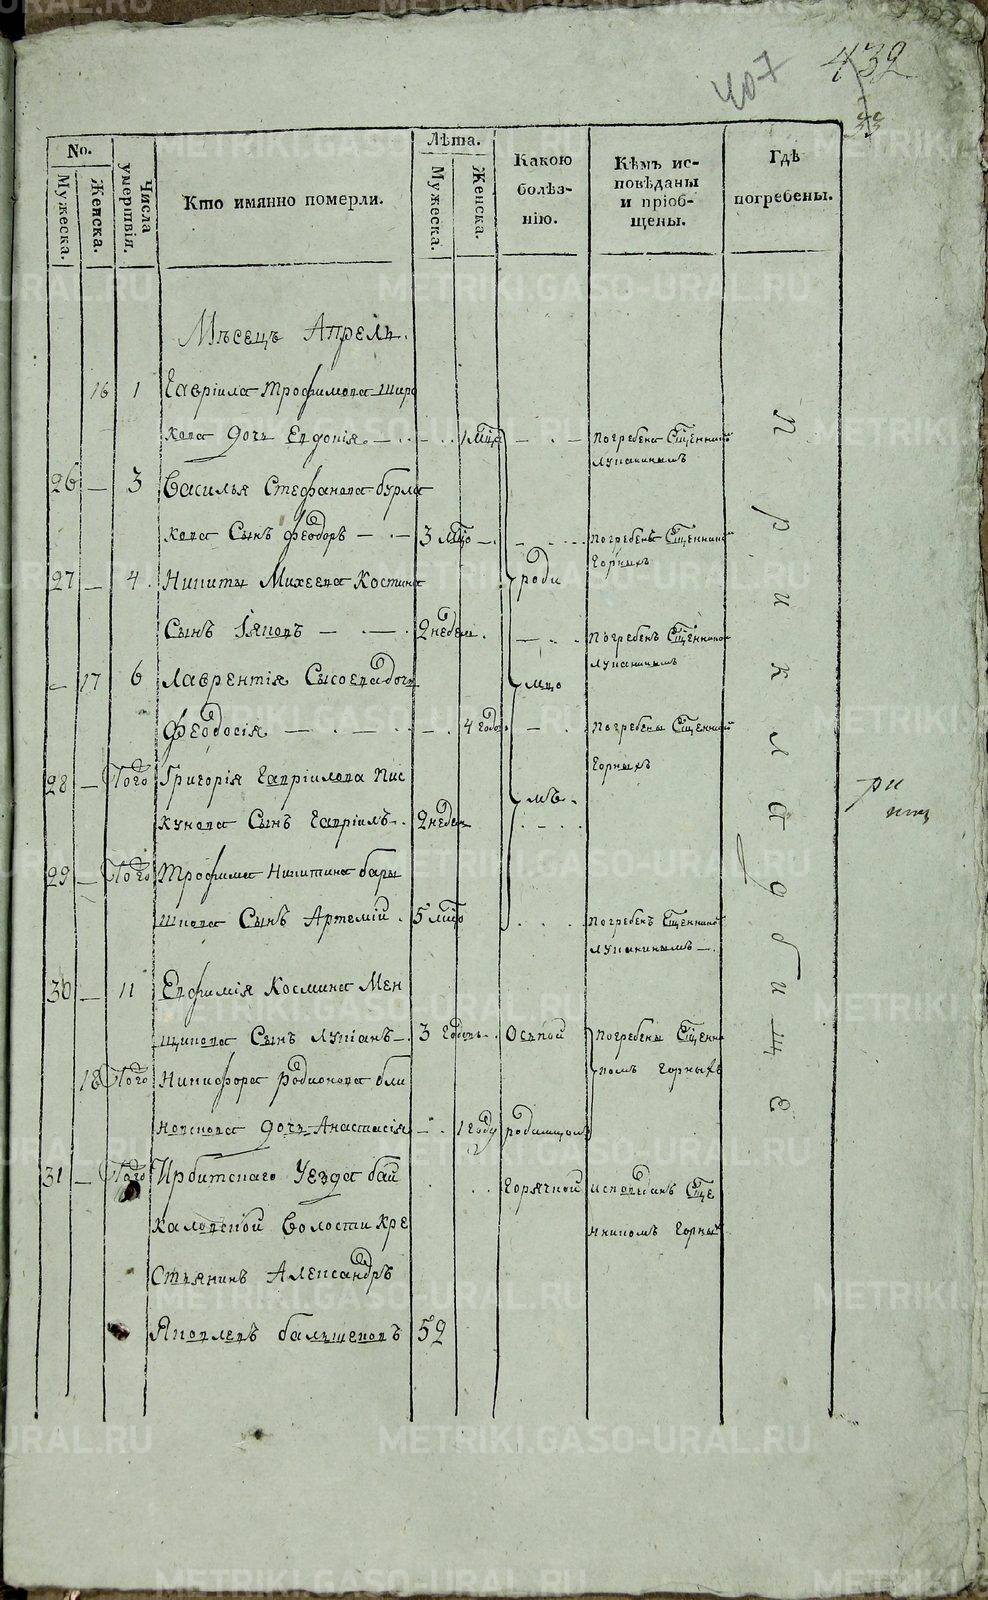 407
432
33
No.
Мужеска.
Женска.
Числа умертвія.
Кто имянно померли.
Лѣта.
Мужеска.
Женска.
Какою болѣз-
нію.
Кѣмъ ис-
повѣданы
и пріоб-
щены.
Гдѣ
погребены.
Мѣсецъ Апрель.
16 1 Гавріила Трофимова Широ
кова дочь Евдокія 1 мца погребена Сщенникомъ
Лукинымъ
26 3 Василья Стефанова Бурма
кова Сынъ Феодоръ 3 мцо погребенъ Сщенникомъ
Горныхъ
27 4 Никиты Михеева Костина роди
Сынъ Іяковъ 2 недели погребенъ Сщенникомъ
17 6 Лаврентія Сысоева дочь мцо
Феодосія 4 годо погребены Сщенникомъ
Горныхъ
28 Того Григорія Гавріилова Пис
кунова Сынъ Гавріилъ 2 недел мъ.
29 Того Трофима Никитина Бары
шнова Сынъ Артемій 5 мцо погребенъ Сщенником
30 11 Евфимія Космина Мен
щикова Сынъ Лукіанъ 3 годовъ Оспой погребены Сщенни
комъ Горныхъ
18 Того Никифора Родионова бли
новскова дочь Анастасія 1 году родимцомъ
31 Того Ирбитскаго Уезда бай
каловской волости кре
Стьянинъ Александръ
Яковлевъ Балышевовъ 52
Горячкой исповеданъ Сще
нникомъ Горных
п р и к л а д б и щ е
METRIKI.GASO-URAL.RU